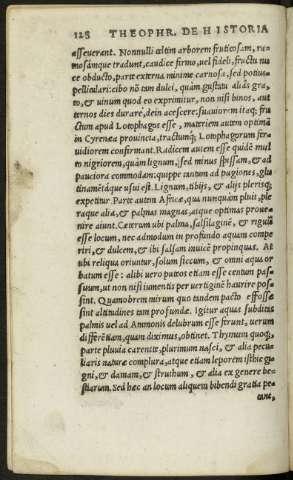 128 THEOPHR. DE HISTORIA
asseuerant. Nonnulli celtim arborem fruticosam, ra-
mosamque tradunt, caudice firmo, uel fideli, fructu nu
ce obducto, parte externa minime carnosa, sed potius
pelliculari: cibo non tum dulci, quàm gustatu aliàs gra-
to, & uinum quod eo exprimitur, non nisi binos, aut
ternos dies durare, dein acescere: suauiorem itaq; fru
ctum apud Lotophagos esse, materiem autem optimā
in Cyrenea prouincia, tractumq; Lotophagorum fer-
uidiorem confirmant. Radicem autem esse quidē mul
to nigriorem, quàm lignum, sed minus spissam, & ad
pauciora commodam: quippe tantum ad pugiones, glu
tinamētáque usui est. Lignum, tibijs, & alijs plerisq;
expetitur. Parte autem Africæ, qua nunquam pluit, ple
raque alia, & palmas magnas, atque optimas proue-
nire aiunt. Cæterum ubi palma, salsilaginē, & riguū
esse locum, nec admodum in profundo aquam compe
riri, & dulcem, & ibi salsam inuicē propinquas. At
ubi reliqua oriuntur, solum siccum, & omni aqua or
batum esse: alibi uero puteos etiam esse centum pas-
suum, ut non nisi iumentis per uertiginē haurire pos-
sint. Quamobrem mirum quo tandem pacto effossæ
sint altitudines tam profundæ. Igitur aquas subditas
palmis uel ad Ammonis delubrum esse ferunt, uerum
differētiam, quam diximus, obtinet. Thymum quoq;
parte pluuia carente, plurimum nasci, & alia pecu
liaria naturæ complura, atque etiam leporem isthic gi
gni, & damam, & struthum, & alia ex genere be-
stiarum. Sed hæc an locum aliquem bibendi gratia pe